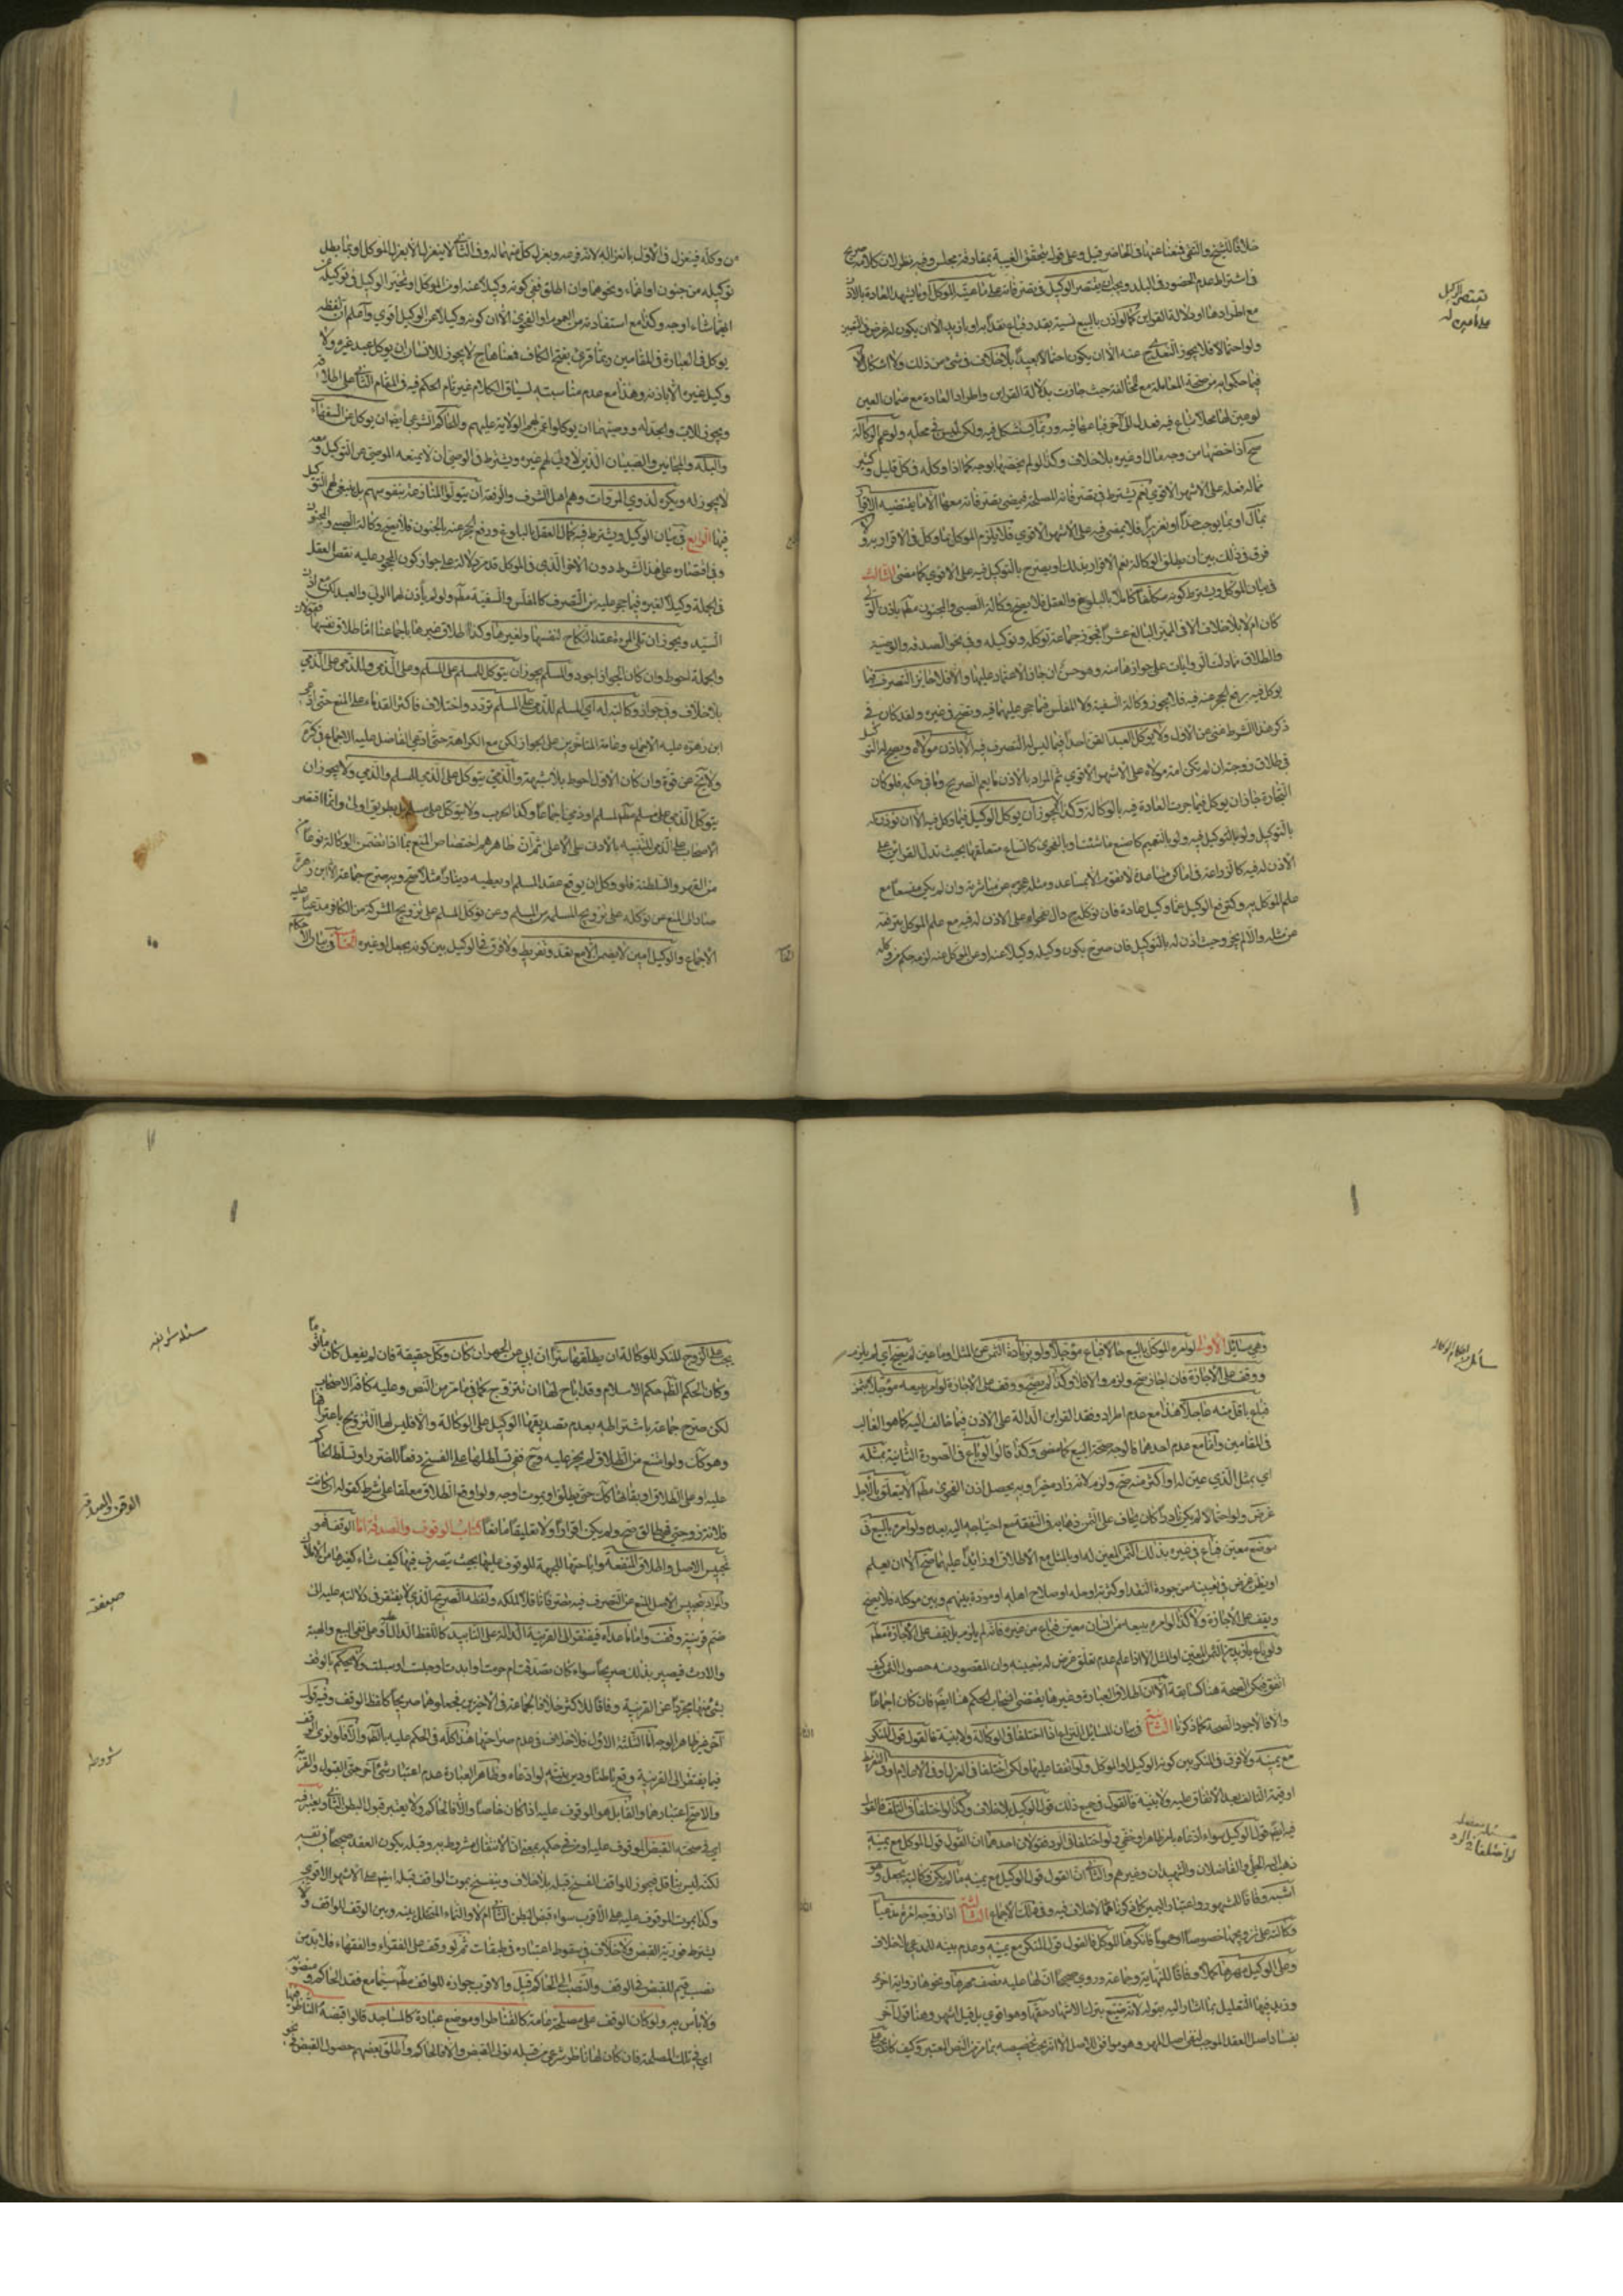 خلافاً للشيخ والتقي فمنعا عنها في الحاضر قيل وعلى قوله يتحقق الغيبة بمفارقة مجلس وفيه نظر لان كلامه صريح
في اشتراط عدم الحضور في البلد ويجب ان يقتصر الوكيل في تصرفاته على ما عينه الموكل او ما يشهد العادة بالاذن
يقتصر الوكيل
على ما عين له
مع اطرادها او دلالة القراين كما لو اذن بالبيع نسية بقدر فباع نقداً به او بازيد الا ان يكون له غرض في التعيين
ولو احتمالا فلا يجوز التعدي ح عنه الا ان يكون احتمالا بعيداً بلا خلاف في شئ من ذلك ولا اشكال الا
فيما حكموا به من صحة المعاملة مع المخالفة حيث جازت بدلالة القراين واطراد العادة مع ضمان العين
لو عين لها محلا تباع فيه فعدل الى آخر فباعها فيه وربما يستشكل فيه ولكن ليس في محله ولو عمم الوكالة
صح اذا خصها من وجه بمال او غيره بلا خلاف وكذا لو لم يخصها بوجه كما اذا وكله في كل قليل وكثير
مما له فعله على الاشهر الاقوى نعم يشترط في تصرفاته المصلحة فيمضي تصرفاته معها الا ما يقتضيه الاقرار
بمال او بما يوجب حداً او تعزيراً فلا يمضي فيه على الاشهر الاقوى فلا يلزم الموكل بما وكل في الاقرار به ولا
فرق في ذلك بين ان يطلق الوكالة نعم الاقرار بذلك او يصرح بالتوكيل فيه على الاقوى كما مضى الثالث
في بيان الموكل ويشترط كونه مكلفاً كاملاً بالبلوغ والعقل فلا يصح وكالة الصبي والمجنون مطلقاً باذن الولي
كان ام لا بلا خلاف الا في المميز البالغ عشراً فجوز جماعة توكله وتوكيله وفي نحو الصدقة والوصية
والطلاق مما دلت الروايات على جوازها منه وهو حسن ان جاز الاعتماد عليها والا فلا جايز التصرف فيما
يوكل فيه برفع الحجر عنه فيه فلا يجوز وكالة السفيه ولا المفلس فيما حجر عليهما فيه ويصح في غيره ولقد كان في
ذكر هذا الشرط غنى عن الاول ولا يوكل العبد القن احداً فيما ليس له التصرف فيه الا باذن مولاه ويصح له التوكيل
في طلاق زوجته ان لم تكن امة مولاه على الاشهر الاقوى ثم المراد بالاذن ما يعم الصريح وما في حكمه فلو كان
التجارة جاز ان يوكل فيما جرت العادة فيه بالوكالة وكذا لا يجوز ان يوكل الوكيل فيما وكل فيه الا ان يؤذن له
بالتوكيل ولو بالتوكيل فيه ولو بالتعميم كاصنع ما شئت او بالفحوى كاتساع متعلقها بحيث تدل القراين على
الاذن له فيه كالزراعة في اماكن متباعدة لا تقوم الا بمساعد ومثله عجزه عن مباشرته وان لم يكن متسعاً مع
علم الموكل به وكترفع الوكيل عما وكل عادة فان توكله ح دال بفحواه على الاذن له فيه مع علم الموكل بترفعه
عن مثله والا لم يجز وحيث اذن له بالتوكيل فان صرح بكون وكيله وكيلا عنه او عن الموكل عنه لزمه حكم من وكله
من وكله فينعزل في الاول بانعزاله لانه فرعه وبعزل كل منهما له وفي الثاني لا ينعزل الا بعزل الموكل او بما يبطل
توكيله من جنون او اغماء ونحوهما وان اطلق ففي كونه وكيلا عنه او عن الموكل او تخير الوكيل في توكيله عن
ايهما شاء اوجه وكذا مع استفادته من العموم او الفحوى الا ان كونه وكيلا عن الوكيل اقوى واعلم ان لفظة
يوكل في العبارة في المقامين وربما قرئ بفتح الكاف فمعناها ح لا يجوز للانسان ان يوكل عبد غيره ولا
وكيل غيره الا باذنه وهذا مع عدم مناسبته لسياق الكلام غير تام الحكم فيه في المقام الثاني على اطلاقه
ويجوز للاب والجد له ووصيهما ان يوكلوا عمن لهم الولاية عليهم وللحاكم الشرعي ايضاً ان يوكل عن السفهاء
والبله والمجانين والصبيان الذين لا ولي لهم غيره ويشترط في الوصي ان لا يمنعه الموصي عن التوكيل ومعه
لا يجوز له ويكره لذوي المروات وهم اهل الشرف والرفعة ان يتولوا المنازعة بنفوسهم بل ينبغي لهم التوكيل
فيها الرابع في بيان الوكيل ويشترط فيه كمال العقل بالبلوغ ورفع الحجر عنه بالجنون فلا يصح وكالة الصبي والمجنون
وفي اقتصاره على هذا الشرط دون الاخر الذي في الموكل قد مر دلالة على جواز كون المحجور عليه لنقص العقل
في الجملة وكيلا لغيره فيما حجر عليه من التصرف كالمفلس والسفيه مطلقاً ولو لم يأذن لهما الولي والعبد لكن مع اذن
السيد ويجوز ان تلي المرءة عقد النكاح لنفسها ولغيرها وكذا طلاق غيرها باجماعنا اما طلاق نفسها فقولان
والجملة احوط وان كان الجواز اجود والمسلم يجوز ان يتوكل للمسلم على المسلم وعلى الذمي وللذمي على الذمي
بلا خلاف وفي جواز وكالته له اي المسلم للذمي على المسلم تردد واختلاف فاكثر القدماء على المنع حتى ادعى
ابن زهرة عليه الاجماع وعامة المتاخرين على الجواز لكن مع الكراهة حتى ادعى الفاضل عليه الاجماع في كره
ولا يخ عن قوة وان كان الاول احوط بلا شبهة والذمي يتوكل على الذمي للمسلم والذمي ولا يجوز ان
يتوكل الذمي على مسلم مطلقاً لمسلم او ذمي اجماعاً وكذا الحرب ولا يتوكل على مسلم بل بطريق اولى وانما اقتصر
الاصحاب على الذمي للتنبيه بالادنى على الاعلى ثم ان ظاهرهم اختصاص المنع بما اذا تضمن الوكالة نوعاً
من القهر والسلطنة فلو وكل ان يوقع عقد المسلم او يعطيه ديناراً مثلا صح وبه صرح جماعة الا ابن زهرة
صار الى المنع عن توكله على تزويج المسلمة من المسلم وعن توكل المسلم على تزويج المشركة من الكافر مدعياً عليه
الاجماع والوكيل امين لا يضمن الا مع تعد وتفريط ولا فرق في الوكيل بين كونه بجعل او غيره الخامس في بيان الاحكام
وهي مسايل الاولى لو امره الموكل بالبيع حالا فباع مؤجلا ولو بزيادة الثمن عن المثل وما عين لم يصح اي لم يلزم
ووقف على الاجازة فان اجاز صح ولزم والا فلا وكذا لم يصح ووقف على الاجازة لو امر ببيعه مؤجلا بثمن
فباع باقل منه عاجلا هذا مع عدم اطراد وفقد القراين الدالة على الاذن فيما خالف اليه كما هو الغالب
في المقامين واما مع عدم احدهما فالوجه صحة البيع كما مضى وكذا قالوا لو باع في الصورة الثانية بمثله
اي بمثل الذي عين له او اكثر منه صح ولزم لانه زاد خيراً وبه يحصل اذن الفحوى مطلقاً الا ان يتعلق بالاجل
غرض ولو احتمالا لم يكن نادراً كأن يخاف على الثمن ذهابه في النفقة مع احتياجه اليه بعده ولو امر بالبيع في
موضع معين فباع في غيره بذلك الثمن المعين له او بالمثل مع الاطلاق او زائداً عليهما صح الا ان يعلم
او يظن غرض في تعيينه من جودة النقد او كثرته او حله او صلاح اهله او مودة بينهم وبين موكله فلا يصح
ويقف على الاجازة ولا كذا لو امره ببيعه من انسان معين فباع من غيره فانه لم يلزم بل يقف على الاجازة مطلقاً
ولو باع بازيد من الثمن المعين او المثل الا اذا علم عدم تعلق غرض له بتعيينه وان المقصود منه حصول الثمن كيف
اتفق فيكن الصحة هنا كسابقه الا ان اطلاق العبارة وغيرها يقتضي انسحاب الحكم هنا ايضاً فان كان اجماعاً
والا فالاجود الصحة كما ذكرنا الثانية في بيان المسايل النزاع اذا اختلفا في الوكالة ولا بينة فالقول قول المنكر
مع يمينه ولا فرق في المنكر بين كونه الوكيل او الموكل ولو اتفقا عليها ولكن اختلفا في العزل او في الاعلام او في التفريط
او قيمة التالف بعد الاتفاق عليه ولا بينة فالقول في جميع ذلك قول الوكيل بلا خلاف وكذا لو اختلفا في التلف فالقول
فيه ايضاً قول الوكيل سواء ادعاه بامر ظاهر او خفي ولو اختلفا في الرد فقولان احدهما ان القول قول الموكل مع يمينه
ذهب اليه الحلي والفاضلان والشهيدان وغيرهم والثاني ان القول قول الوكيل مع يمينه ما لم يكن وكالته بجعل وهو
اشبه وفاقاً للمشهور واعتبار اليمين كما ذكرناه مما لا خلاف فيه وفي الاجماع الثالثة اذا زوجه امرءة مدعياً
وكالته على تزويجها خصوصاً او عموماً فانكرها الموكل فالقول قول المنكر مع يمينه وعدم بينه للمدعي بلا خلاف
وعلى الوكيل مهرها كملا وفاقاً للنهاية وجماعة وروي صحيحاً ان لها عليه نصف مهرها ونحوها رواية اخرى
وزيد فيها التعليل بما اشار اليه بقوله لانه ضيع بترك الاشهاد حقها وهو اقوى بل قيل اشهر وهنا قول آخر
بفساد اصل العقد الموجب لنفي اصل المهر وهو موافق للاصل الا انه يجب تخصيصه بما مر من النص المعتبر وكيف كان يجب على
يجب على الزوج المنكر للوكالة ان يطلقها سراً ان ابى من الجهر ان كان وكل حقيقة فان لم يفعل كان ماثوماً
وكان الحكم الظاهر حكم الاسلام وقد اباح لها ان تتزوج كما في ما مر من النص وعليه كافة الاصحاب
لكن صرح جماعة باشتراطه بعدم تصديقها الوكيل على الوكالة والا فليس لها التزويج باعترافها
وهو كك ولو امتنع من الطلاق لم يجبر عليه وح ففي تسلطها على الفسخ دفعاً للضرر او تسلط الحاكم
عليه او على الطلاق او بقائها كك حتى يطلق او يموت اوجه ولو اوقع الطلاق معلقا على شرط كقوله ان كانت
فلانة زوجتي فهي طالق صح ولم يكن اقراراً ولا تعليقاً مانعاً كتاب الوقوف والصدقات اما الوقف فهو
الوقف والصدقات
تحبيس الاصل واطلاق المنفعة واباحتها للجهة الموقوف عليها بحيث يتصرف فيها كيف شاء كغيرها من الاملاك
والمراد بتحبيس الاصل المنع عن التصرف فيه تصرفا ناقلا لملكه ولفظه الصريح الذي لا يفتقر في دلالته عليه الى
ضم قرينة وقفت واما ما عداه فيفتقر الى القرينة الدالة على التابيد كاللفظ الدال او على نفي البيع والهبة
والارث فيصير بذلك صريحاً سواء كان تصدقت ام حرمت او ابدت او حبست او سبلت ولا يحكم بالوقف
بشئ منها مجرداً عن القرينة وفاقاً للاكثر خلافا لجماعة في الاخيرين فجعلوهما صريحاً كلفظ الوقف وفيه قول
آخر غير ظاهر الوجه اما الثلثة الاول فلا خلاف في عدم صراحتها هذا كله في الحكم عليه بالظاهر والا فلو نوى الوقف
فيما يفتقر الى القرينة وقع باطناً ودين بنيته لو ادعاه وظاهر العبارة عدم اعتبار شئ آخر حتى القبول والقربة
شروط
والاصح اعتبارهما والقابل هو الموقوف عليه اذا كان خاصاً والا فالحاكم ولا يعتبر قبول البطن الثاني ويعتبر فيه
اي في صحته القبض الموقوف عليه او من في حكمه بمعنى ان الانتقال مشروط به وقبله يكون العقد صحيحاً في نفسه
لكنه ليس بناقل فيجوز للواقف الفسخ قبله بلا خلاف وينفسخ بموت الواقف قبله ايضاً على الاشهر الاقوى
وكذا بموت الموقوف عليه على الاقرب سواء قبض البطن الثاني ام لا والنماء المتخلل بينه وبين الوقف للواقف ولا
يشترط فورية القبض ولا خلاف في سقوط اعتباره في طبقات ثم لو وقف على الفقراء والفقهاء فلا بد من
نصب قيم للقبض في الوقف والنصب الى الحاكم قيل والاقرب جوازه للواقف مطلقاً سيما مع فقد الحاكم ومنصوبه
ولا بأس به ولو كان الوقف على مصلحة عامة كالقناطر او موضع عبادة كالمساجد قالوا قبضه الناظر فيها
اي في تلك المصلحة فان كان لها ناظر شرعي من قبله تولى القبض والا فالحاكم واطلق بعضهم حصول القبض في نحو